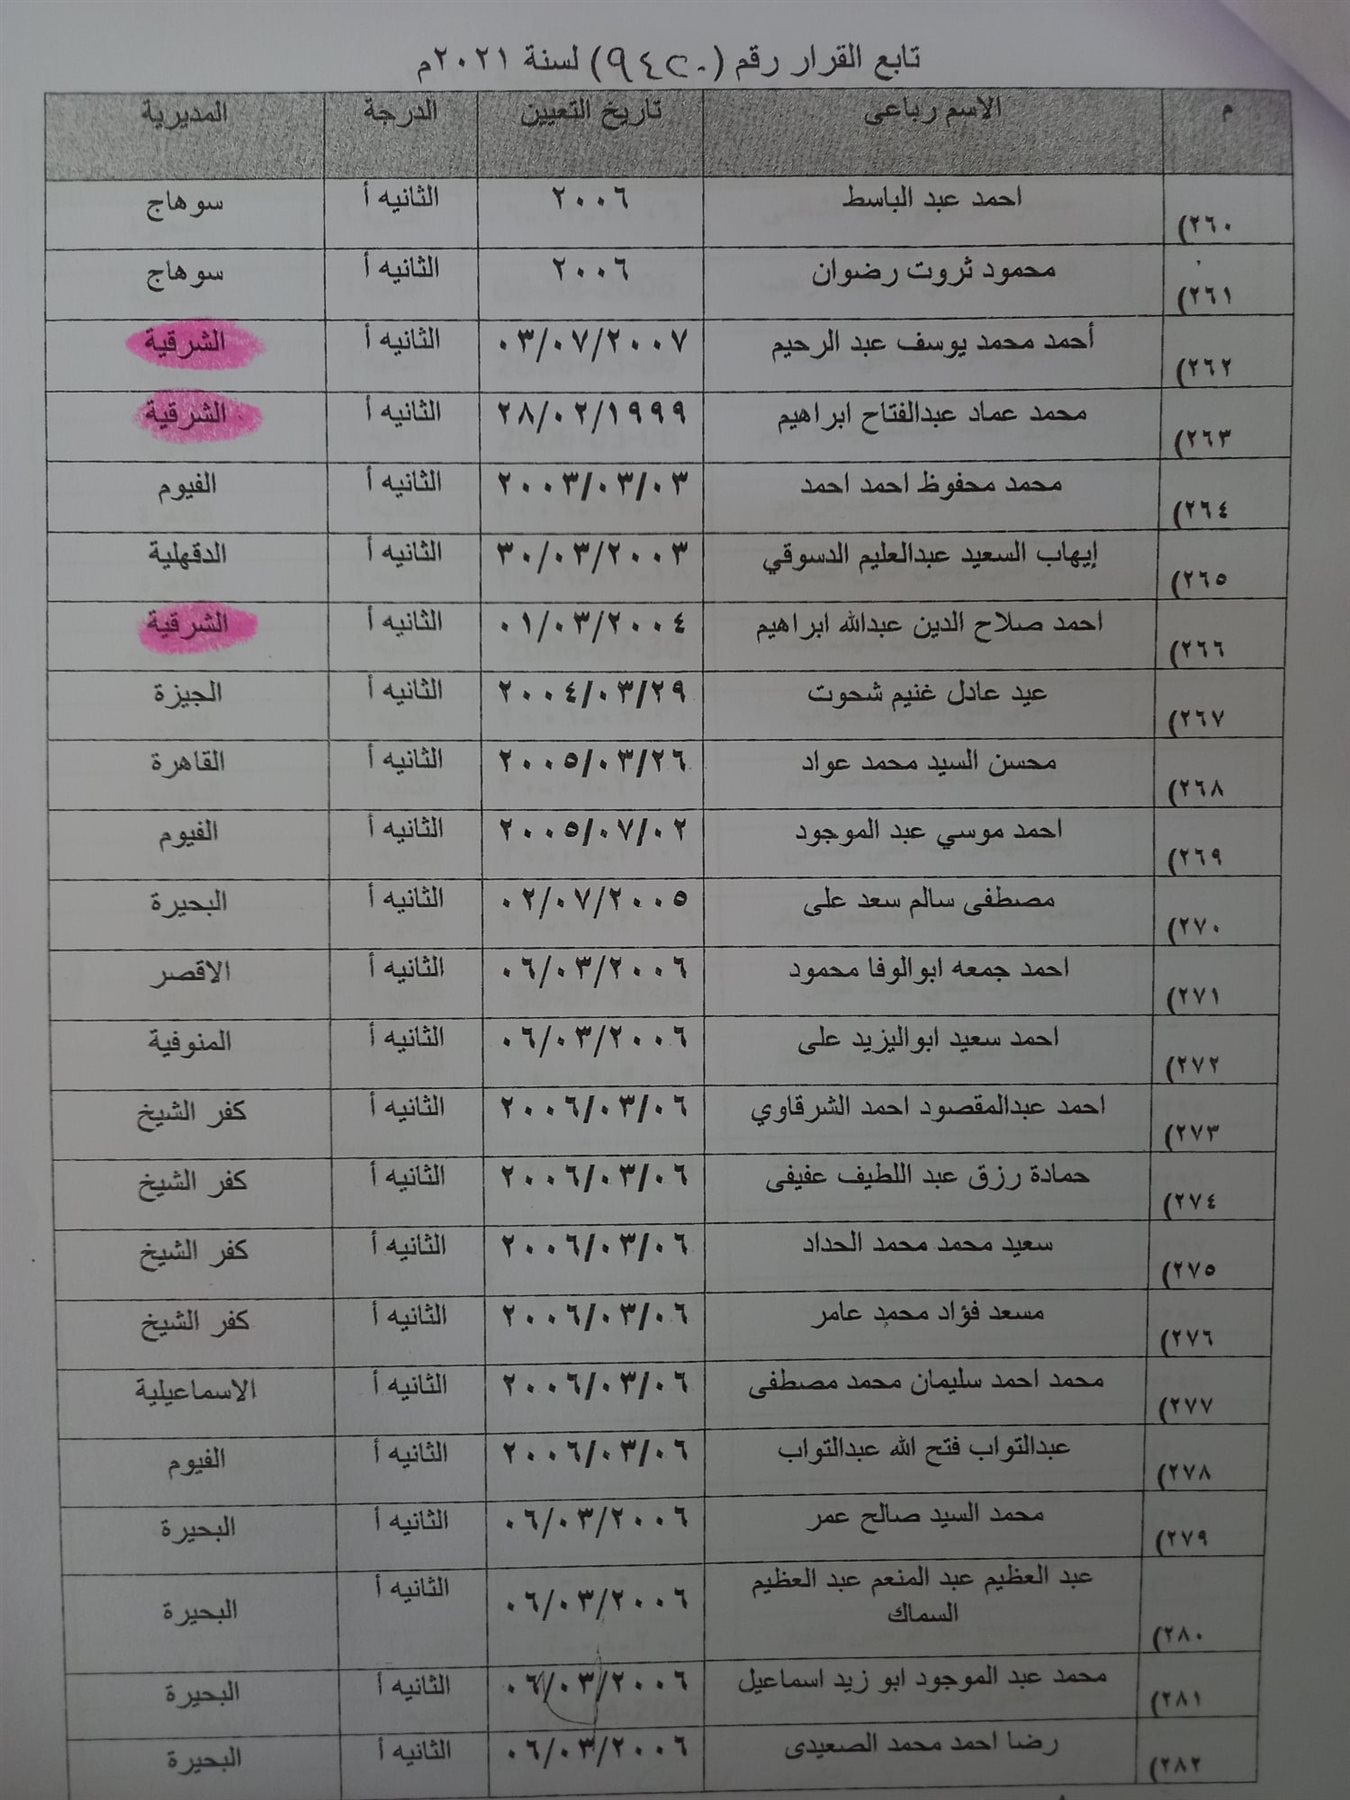 تابع القرار رقم (٩٤٢٠) لسنة ٢٠٢١م
م الاسم رباعى تاريخ التعيين الدرجة المديرية
٢٦٠) احمد عبد الباسط ٢٠٠٦ الثانيه أ سوهاج
٢٦١) محمود ثروت رضوان ٢٠٠٦ الثانيه أ سوهاج
٢٦٢) أحمد محمد يوسف عبد الرحيم ٠٣/٠٧/٢٠٠٧ الثانيه أ الشرقية
٢٦٣) محمد عماد عبدالفتاح ابراهيم ٢٨/٠٢/١٩٩٩ الثانيه أ الشرقية
٢٦٤) محمد محفوظ احمد احمد ٢٠٠٣/٠٣/٠٣ الثانيه أ الفيوم
٢٦٥) إيهاب السعيد عبدالعليم الدسوقي ٣٠/٠٣/٢٠٠٣ الثانيه أ الدقهلية
٢٦٦) احمد صلاح الدين عبدالله ابراهيم ٠١/٠٣/٢٠٠٤ الثانيه أ الشرقية
٢٦٧) عيد عادل غنيم شحوت ٢٠٠٤/٠٣/٢٩ الثانيه أ الجيزة
٢٦٨) محسن السيد محمد عواد ٢٠٠٥/٠٣/٢٦ الثانيه أ القاهرة
٢٦٩) احمد موسي عبد الموجود ٢٠٠٥/٠٧/٠٢ الثانيه أ الفيوم
٢٧٠) مصطفى سالم سعد على ٠٢/٠٧/٢٠٠٥ الثانيه أ البحيرة
٢٧١) احمد جمعه ابوالوفا محمود ٠٦/٠٣/٢٠٠٦ الثانيه أ الاقصر
٢٧٢) احمد سعيد ابواليزيد على ٠٦/٠٣/٢٠٠٦ الثانيه أ المنوفية
٢٧٣) احمد عبدالمقصود احمد الشرقاوي ٢٠٠٦/٠٣/٠٦ الثانيه أ كفر الشيخ
٢٧٤) حمادة رزق عبد اللطيف عفيفى ٢٠٠٦/٠٣/٠٦ الثانيه أ كفر الشيخ
٢٧٥) سعيد محمد محمد الحداد ٢٠٠٦/٠٣/٠٦ الثانيه أ كفر الشيخ
٢٧٦) مسعد فؤاد محمد عامر ٢٠٠٦/٠٣/٠٦ الثانيه أ كفر الشيخ
٢٧٧) محمد احمد سليمان محمد مصطفى ٢٠٠٦/٠٣/٠٦ الثانيه أ الاسماعيلية
٢٧٨) عبدالتواب فتح الله عبدالتواب ٢٠٠٦/٠٣/٠٦ الثانيه أ الفيوم
٢٧٩) محمد السيد صالح عمر ٠٦/٠٣/٢٠٠٦ الثانيه أ البحيرة
٢٨٠) عبد العظيم عبد المنعم عبد العظيم ٠٦/٠٣/٢٠٠٦ الثانيه أ البحيرة
السماك
٢٨١) محمد عبد الموجود ابو زيد اسماعيل ٠٦/٠٣/٢٠٠٦ الثانيه أ البحيرة
٢٨٢) رضا احمد محمد الصعيدى ٠٦/٠٣/٢٠٠٦ الثانيه أ البحيرة